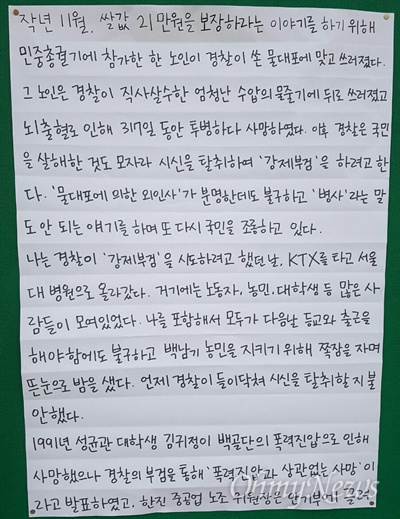 작년 11월, 쌀값 21만원을 보장하라는 이야기를 하기 위해
민중총궐기에 참가한 한 노인이 경찰이 쏜 물대포에 맞고 쓰러졌다.
그 노인은 경찰이 직사살수한 엄청난 수압의 물줄기에 뒤로 쓰러졌고
뇌출혈로 인해 317일 동안 투병하다 사망하였다. 이후 경찰은 국민
을 살해한 것도 모자라 시신을 탈취하여 '강제부검'을 하려고 한
다. '물대포에 의한 외인사'가 분명한데도 불구하고 '병사'라는 말
도 안 되는 얘기를 하며 또 다시 국민을 조롱하고 있다.
나는 경찰이 '강제부검'을 시도하려고 했던 날, KTX를 타고 서울
대 병원으로 올라갔다. 거기에는 노동자, 농민, 대학생 등 많은 사
람들이 모여있었다. 나를 포함해서 모두가 다음날 등교와 출근을
해야함에도 불구하고 백남기 농민을 지키기 위해 쪽잠을 자며
뜬눈으로 밤을 샜다. 언제 경찰이 들이닥쳐 시신을 탈취할 지 불
안했다.
1991년 성균관 대학생 김귀정이 백골단의 폭력진압으로 인해
사망했으나 경찰의 부검을 통해 '폭력진압과 상관없는 사망'이
라고 발표하였고, 한진 중공업 노조 위원장은 안기부에 끌려
OhmyNews